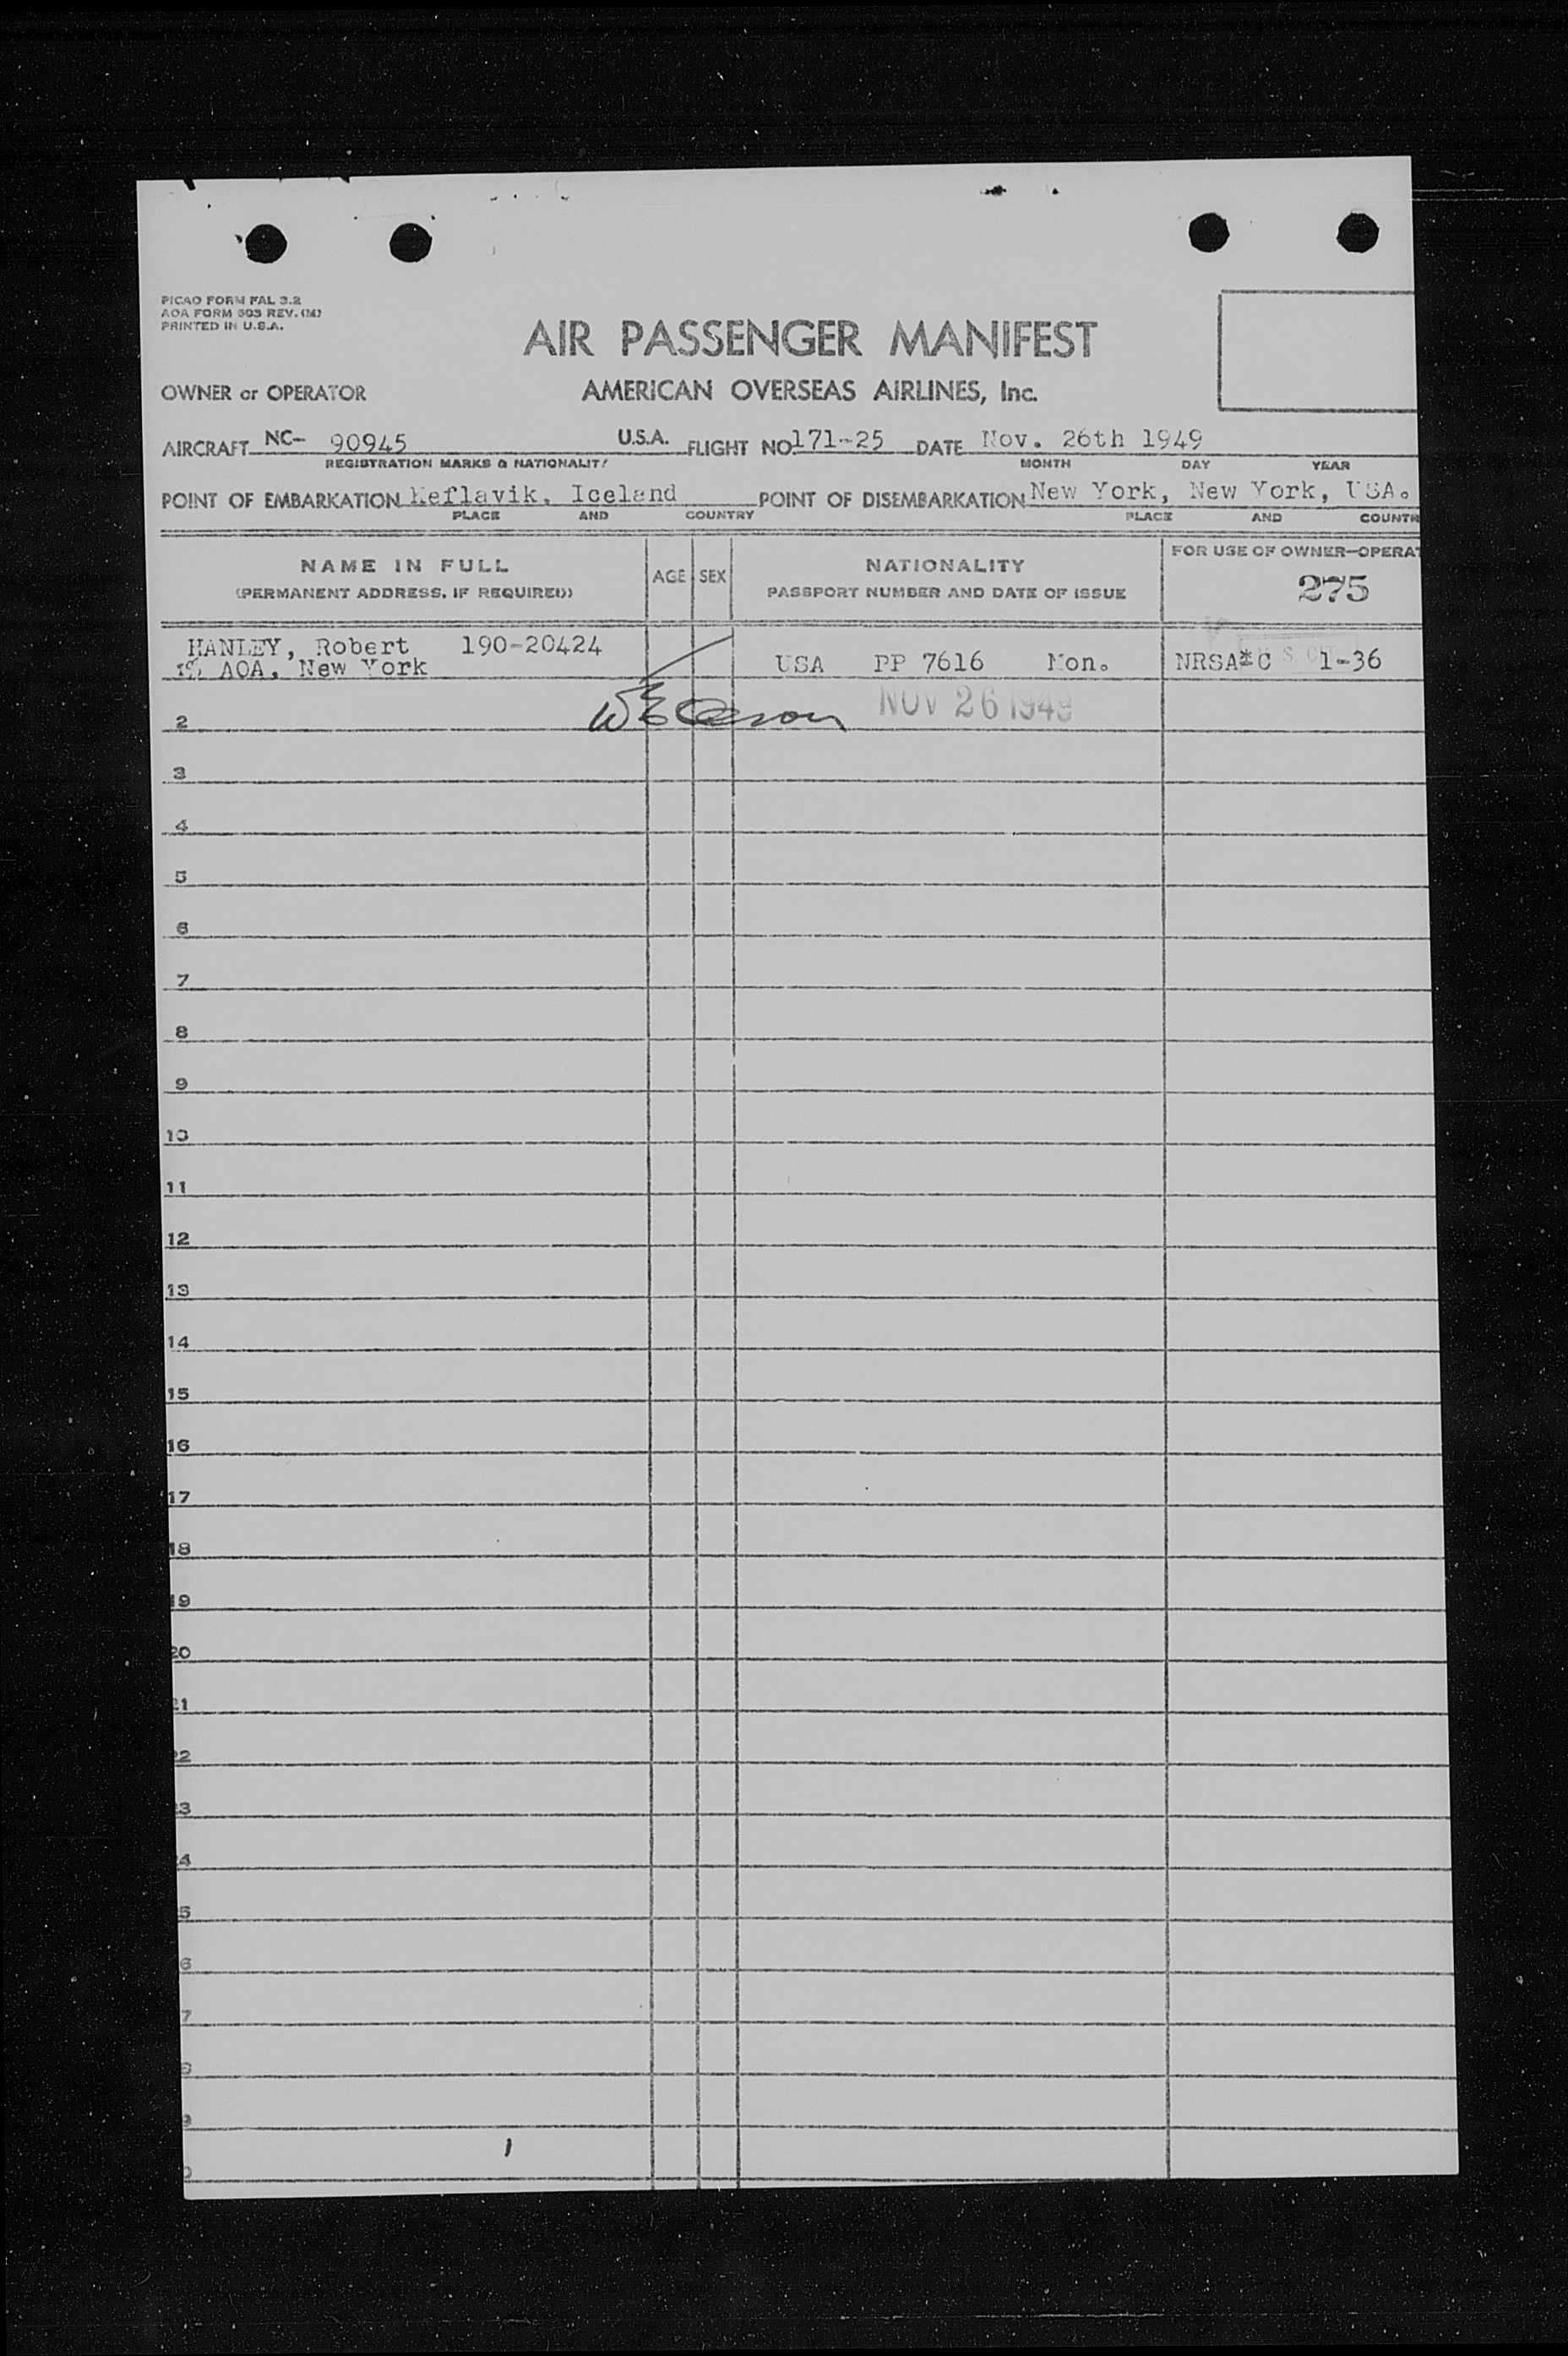 PICAO FORM FAL 3.2
AOA FORM 603 REV. (M)
PRINTED IN U.S.A.
AIR PASSENGER MANIFEST
OWNER or OPERATOR AMERICAN OVERSEAS AIRLINES, Inc.
AIRCRAFT NC- 90945 U.S.A. FLIGHT NO 171-25 DATE Nov. 26th 1949
REGISTRATION MARKS & NATIONALITY MONTH DAY YEAR
POINT OF EMBARKATION Keflavik, Iceland POINT OF DISEMBARKATION New York, New York, USA.
PLACE AND COUNTRY PLACE AND COUNTR
NAME IN FULL
(PERMANENT ADDRESS, IF REQUIRED)
AGE SEX
NATIONALITY
PASSPORT NUMBER AND DATE OF ISSUE
FOR USE OF OWNER-OPERAT
275
HANLEY, Robert 190-20424
1 % AOA, New York USA PP 7616 Mon. NRSA*C 1-36
NOV 26 1949
2
3
4
5
6
7
8
9
10
11
12
13
14
15
16
17
18
19
20
21
22
3
4
5
6
7
8
9
0